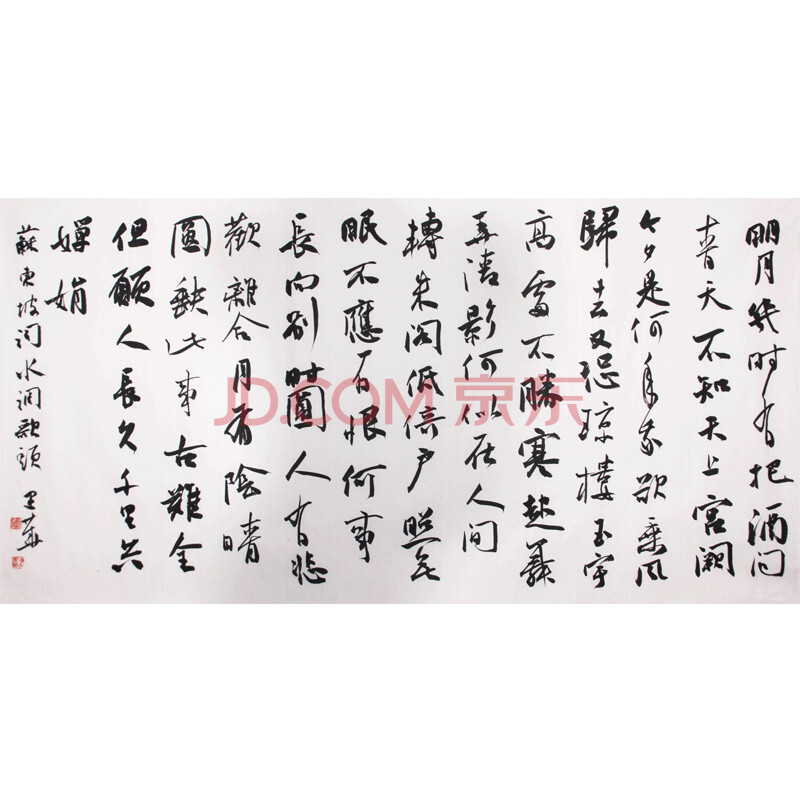 明月幾时有把酒问
青天不知天上宫阙
今夕是何年我欲乘风
歸去又恐琼樓玉宇
高處不勝寒起舞
弄清影何似在人间
轉朱阁低绮户照无
眠不應有恨何事
長向别时圓人有悲
歡離合月有陰晴
圓缺此事古難全
但願人長久千里共
嬋娟
蘇东坡词水调歌頭
JD.COM 京东